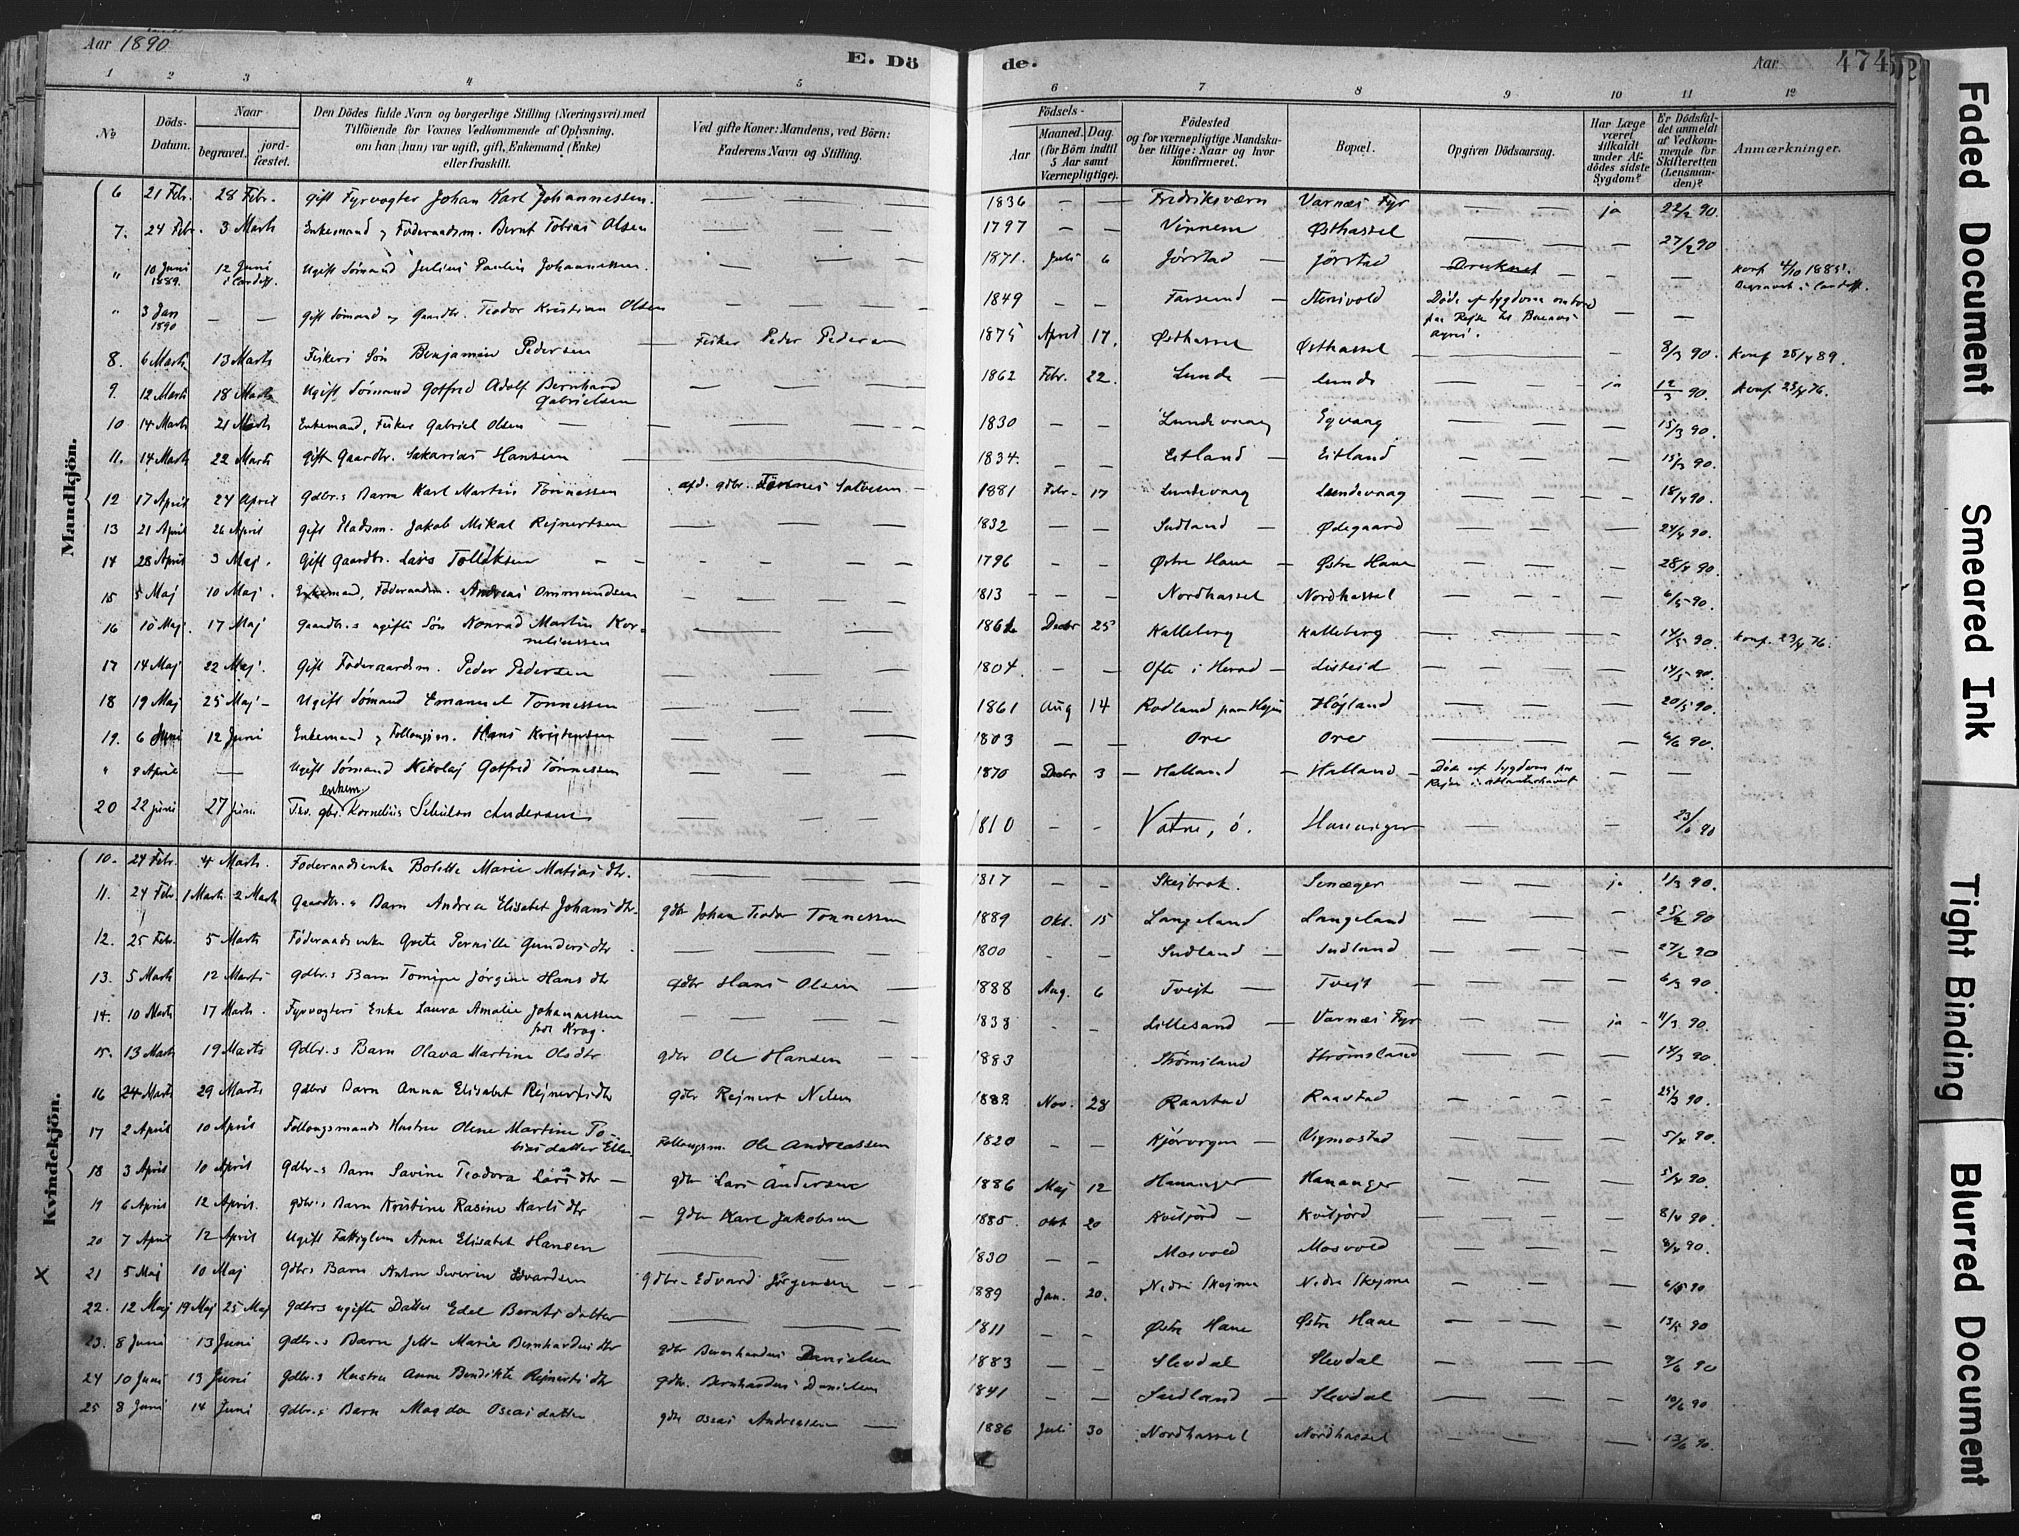 Aar 1890
E. Dö
de.
Aar
474
1 2 3 4 5 6 7 8 9 10 11 12
No
Döds-Datum.
Naar
begravet. jordfæstet.
Den Dödes fulde Navn og borgerlige Stilling (Næringsvei) med
Tilföiende for Voxnes Vedkommende af Oplysning,
om han (hun) var ugift, gift, Enkemand (Enke)
eller fraskilt.
Ved gifte Koner: Mandens, ved Börn:
Faderens Navn og Stilling.
Födsels-
Aar
Maaned. Dag.
(for Börn indtil
5 Aar samt
Værnepligtige).
Födested
og for værnepligtige Mandskaber tillige: Naar og hvor
konfirmeret.
Bopæl.
Opgiven Dödsaarsag.
Har Læge
været
tilkaldt
under Afdödes sidste
Sygdom?
Er Dödsfaldet anmeldt
af Vedkommende for
Skifteretten
(Lensmanden)?
Anmærkninger.
Mandkjön.
6 21 Febr. 28 Febr. Gift Fyrvogter Johan Karl Johannessen. 1836 — — Fredriksværn Varnæs Fyr — ja 22/2 90.
7. 24 Febr. 3 Marts Enkemand og Föderaadsm. Bernt Tobias Olsen 1797 — — Vinnem Østhassel — — 27/2 90
" 10 Juni 1889. 12 Juni i Cardiff. Ugift Sømand Julius Paulin Johannessen. 1871. Juli 6 Jørstad Jørstad Druknet — — konf 4/10 1885. Begravet i Cardiff.
" 3 Jan 1890 — — Gift Sømand og Gaardbr. Teodor Kristian Olsen 1849 — — Farsund — Stenivold Døde af Sygdom ombord paa Rejse til Buenos ayres. — —
8. 6 Marts 13 Marts Fiskers Søn Benjamin Pedersen — Fisker Peder Pedersen 1875 April 17. Østhassel Østhassel — — 8/3 90. Konf 28/4 89.
9. 12 Marts 18 Marts Ugift Sømand Gotfred Adolf Bernhard Gabrielsen 1862 Febr. 22. Lunde — Lunde — ja 12/3 90. Konf 23/4 76.
10 14 Marts 21 Marts Enkemand, Fisker Gabriel Olsen — 1830 — — Lundevaag Eqvaag — — 15/3 90.
11. 14 Marts 22 Marts Gift Gaardbr. Sakarias Hansen 1834. — — Eitland — Eitland — — 15/3 90.
12 17 April 24 April Gdbr.s Barn Karl Martin Tønnessen afd. gdbr. Tønnes Salvesen — 1881 Febr. 17 Lundevaag Lundevaag — — 18/4 90.
13 21 April 26 April Gift Pladsm. Jakob Mikal Rejnertsen 1832 — — Sudland — Ødegaard — — 24/4 90.
14 28 April 3 Maj. Gift Gaardbr. Lars Tollaksen 1796 — — Østre Hane — Østre Hane — — 28/4 90.
15 5 Maj 10 Maj. Enkemand, Föderaadsm. Andreas Ommundsen 1813 — — Nordhassel Nordhassel — — 6/5 90.
16 10 Maj. 17 Maj Gaardbr.s ugifte Søn Konrad Martin Kornelinssen Decbr 25 Kalleberg Kalleberg — — 14/5 90. Konf. 23/4 76.
17 14 Maj 22 Maj. Gift Föderaadsm. Peder Pedersen 1804. — — Ofte i Herad — Listeid — — 14/5 90.
18 19 Maj 25 Maj — Ugift Sømand Emanuel Tønnessen 1861 Aug 14 Rødland paa Højland — — 20/5 90.
19. 6 Juni 12 Juni Enkemand og Follongsm. Hans Kristensen 1803 — — Ore Ore — — 6/6 90.
" 9 April — Ugift Sømand Nikolaj Gotfred Tønnessen 1870 Decbr 3 — Halland — Halland — Døde af Sygdom paa Rejse i Atlanterhavet — —
20 22 Juni 27 Juni. enkem. gbr. Kornelius Andersen 1810 — — Vatne, ö. Hananger — — 23/6 90
Kvindekjön.
10. 27 Febr. 4 Marts. Föderaadsenke Bolette Marie Matias dtr. 1817 — — Skejbrok. Senæger — ja 1/3 90.
11. 24 Febr. 1 Marts 2 Marts Gaardbr.s Barn Andrea Elisabet Johans dtr. gdbr Johan Teodor Tønnessen 1889 Okt. 15 Langeland Langeland — — 25/2 90
12. 25 Febr. 5 Marts Föderaadsenke Grete Pernille Gunders dtr 1800 — — Sudland — Sudland — — 27/2 90
13. 5 Marts 12 Marts Gdbr.s Barn Tomine Jørgine Hans dtr Gdbr Hans Olsen — 1888 Aug. 6 Tvejt — Tvejt — — 6/3 90.
14. 10 Marts 17 Marts. Fyrvogters Enke Laura Amalie Johannessen født Krog. 1838 — — Lillesand — Varnæs Fyr — ja — 11/3 90.
15. 13 Marts 19 Marts Gdbr.s Barn Olava Martine Olsdtr gdbr Ole Hansen — 1883 — — Strømsland Strømsland — — 14/3 90
16 24 Marts 29 Marts Gdbrs Barn Anna Elisabet Rejnertsdtr gdbr Rejnert Nilsen 1888. Nov. 28 Raastad Raastad — — 25/3 90.
17 2 April 10 April Follongsmands Hustru Olene Martine Tobiasdatter Follongsm. Ole Andreassen 1820 — — Kjørrogen — Vigmostad — — 5/4 90.
18 3 April 10 April Gdbr.s Barn Savine Teodora Lars dtr — gdbr Lars Andersen 1886 Maj 12 Hananger Hananger — — 5/4 90.
19 6 April 12 April. gdbr.s Barn Kristine Rasine Karls dtr — gdbr Karl Jakobsen 1885. Okt 20 Kviljord — Kviljord — — 8/4 90.
20 7 April 12 April Ugift Fattiglem Anne Elisabet Hansen 1830 — — Mosvold Mosvold — — 8/4 90.
X 21 5 Maj 10 Maj gdbrs Barn Anton Severin Edvardsen gdbr. Edvard Jørgensen — 1889 Jan. 20. Nedre Skejme Nedre Skejme — — 6/5 90
22. 12 Maj 19 Maj 25 Maj gdbrs ugifte Datter Edel Bernts datter 1811 — — Østre Hane Østre Hane — — 13/5 90
23. 8 Juni 13 Juni Gdbr.s Barn Jette Marie Bernhardus dtr gdbr Bernhardus Danielsen 1883 — — Slevdal Slevdal — — 9/6 90
24 10 Juni 13 Juni gdbr.s Hustru Anne Bendikte Rejnerts dtr gdbr. Bernhardus Danielsen 1841 — — Sudland — Slevdal — — 10/6 90
25 8 Juni 14 Juni gdbr.s Barn Magda Oscas datter gdbr Oscar Andreassen — 1886 Juli 30 Nordhassel Nordhassel — — 13/6 90.
Faded Document
Smeared Ink
Tight Binding
Blurred Document